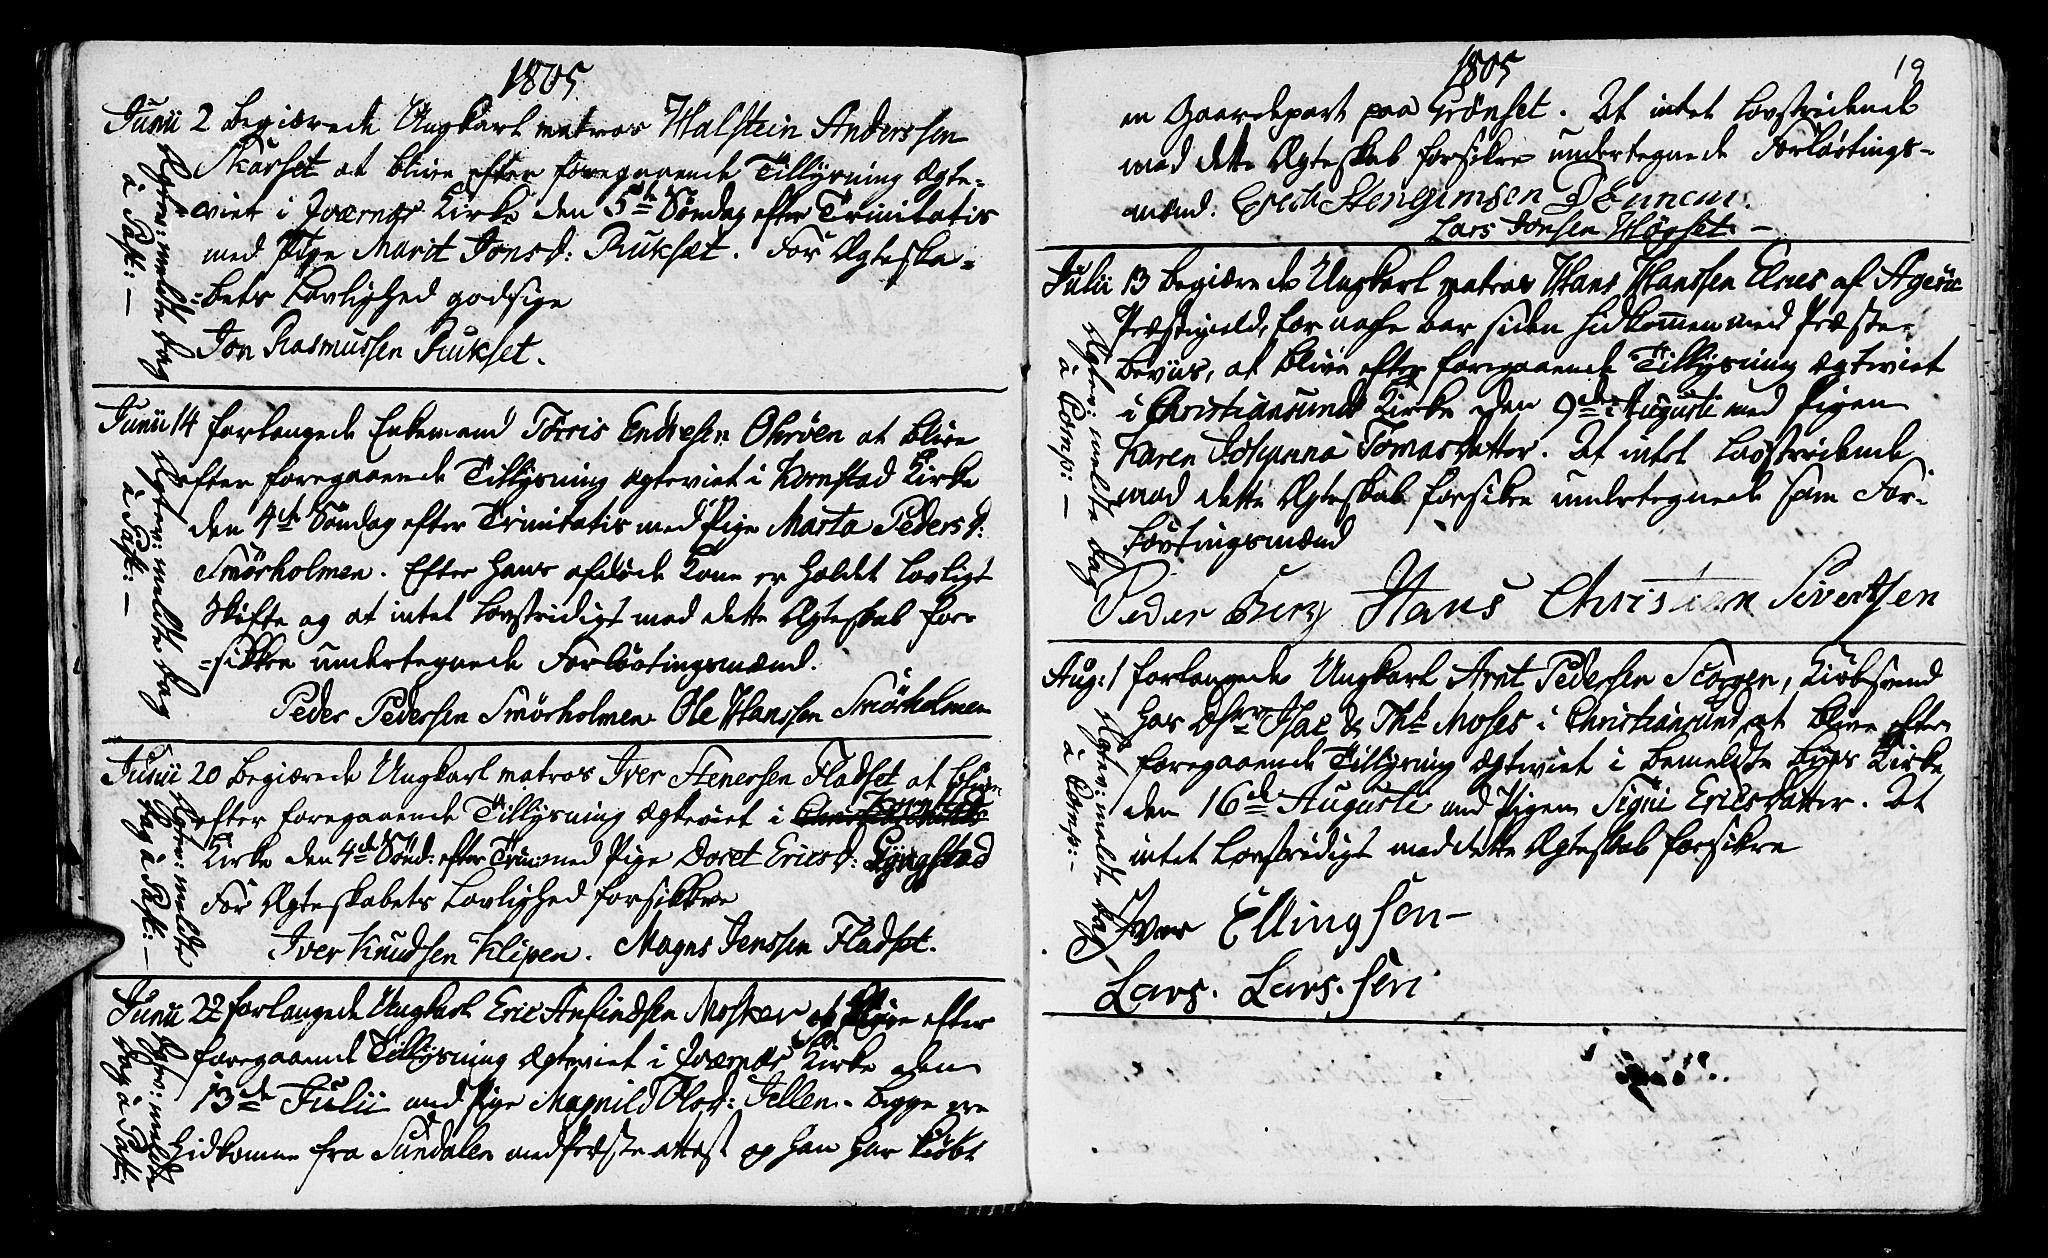 1805
Junii 2 begiærede Ungkarl matros Halstein Anderssen
Skarset at blive efter foregaaende Tillysning ægte-
viet i Qværnæs Kirke den 5te Søndag efter Trinitatis
med Pige Marit Jonsd: Rukset. For Ægteska-
-bets Lovlighed godsige
Jon Rasmussen Rukset.
Ægtev: meldte dag
à Past: —
Junii 14 forlangede Enkemand Torris Endresen Ohrøen at blive
efter foregaaende Tillysning ægteviet i Kornstad Kirke
den 4de Søndag efter Trinitatis med Pige Marta Pedersd:
Smørholmen. Efter hans afdøde Kone er holdet lovligt
Skifte og at intet lovstridigt med dette Ægteskab for-
-sikkre undertegnede Forlovtingsmænd.
Peder Pedersen Smørholmen Ole Hanssen Smørholmen
Ægtev: meldte dag
à Past: —
Junii 20 begiærede Ungkarl matros Iver Stenersen Fladset at blive
efter foregaaende Tillysning ægteviet i Kornstad
Kirke den 4de Sønd: efter Trin: med Pige Doret Ericsd: Lyngstad
For Ægteskabets Lovlighed forsikkre
Iver Knudsen Klipen. Mogns Jenssen Fladset.
Ægtev: meldte
dag à Past: —
Junii 22 forlangede Ungkarl Eric Anfindsen Mosker at blive efter
foregaaende Tillysning ægteviet i Qværnæs Kirke den
13de Julii med Pige Magnild Olsd: Jellen. Begge ere
hidkomne fra Sundalen med Præste attest og han har kiøbt
Ægtev: meldte
dag à Past:
1805
19
en Gaardepart paa Grønset. At intet lovstridende
med dette Ægteskab forsikre undertegnede Forlovtings-
mænd. Erich Stengrimsen
Lars Jonsen Høgset. —
Julii 13 begiærede Ungkarl matros Hans Hanssen Elnes af Agerøe
Præstegield, for nogle aar siden hidkommen med Præste-
beviis, at blive efter foregaaende Tillysning ægteviet
i Christiansunds Kirke den 9de Augusti med Pigen
Karen Johanna Tomasdatter. At intet lovstridende
med dette Ægteskab forsikre undertegnede som For-
lovtingsmænd
Peder Berg Hans Christian Sivertsen
Ægtev: meldte dag
à Comp: —
Aug: 1 forlangede Ungkarl Arnt Pedersen Storøen, Kiøbsvend
hos Dhrr Isac & Ths Moses i Christiansund at blive efter
foregaaende Tillysning ægteviet i bemeldte Byes Kirke
den 16de Augusti med Pigen Signi Ericsdatter. At
intet lovstridigt med dette Ægteskab forsikre
Iver Ellingsen —
Lars. Lars.sen
Ægtev: meldte dag
à Comp: —